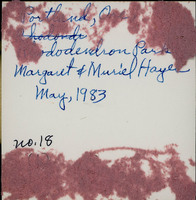 Portland, O
Rhododr
ododendron Park
Margaret & Muriel Hayes
May, 1983
no. 18